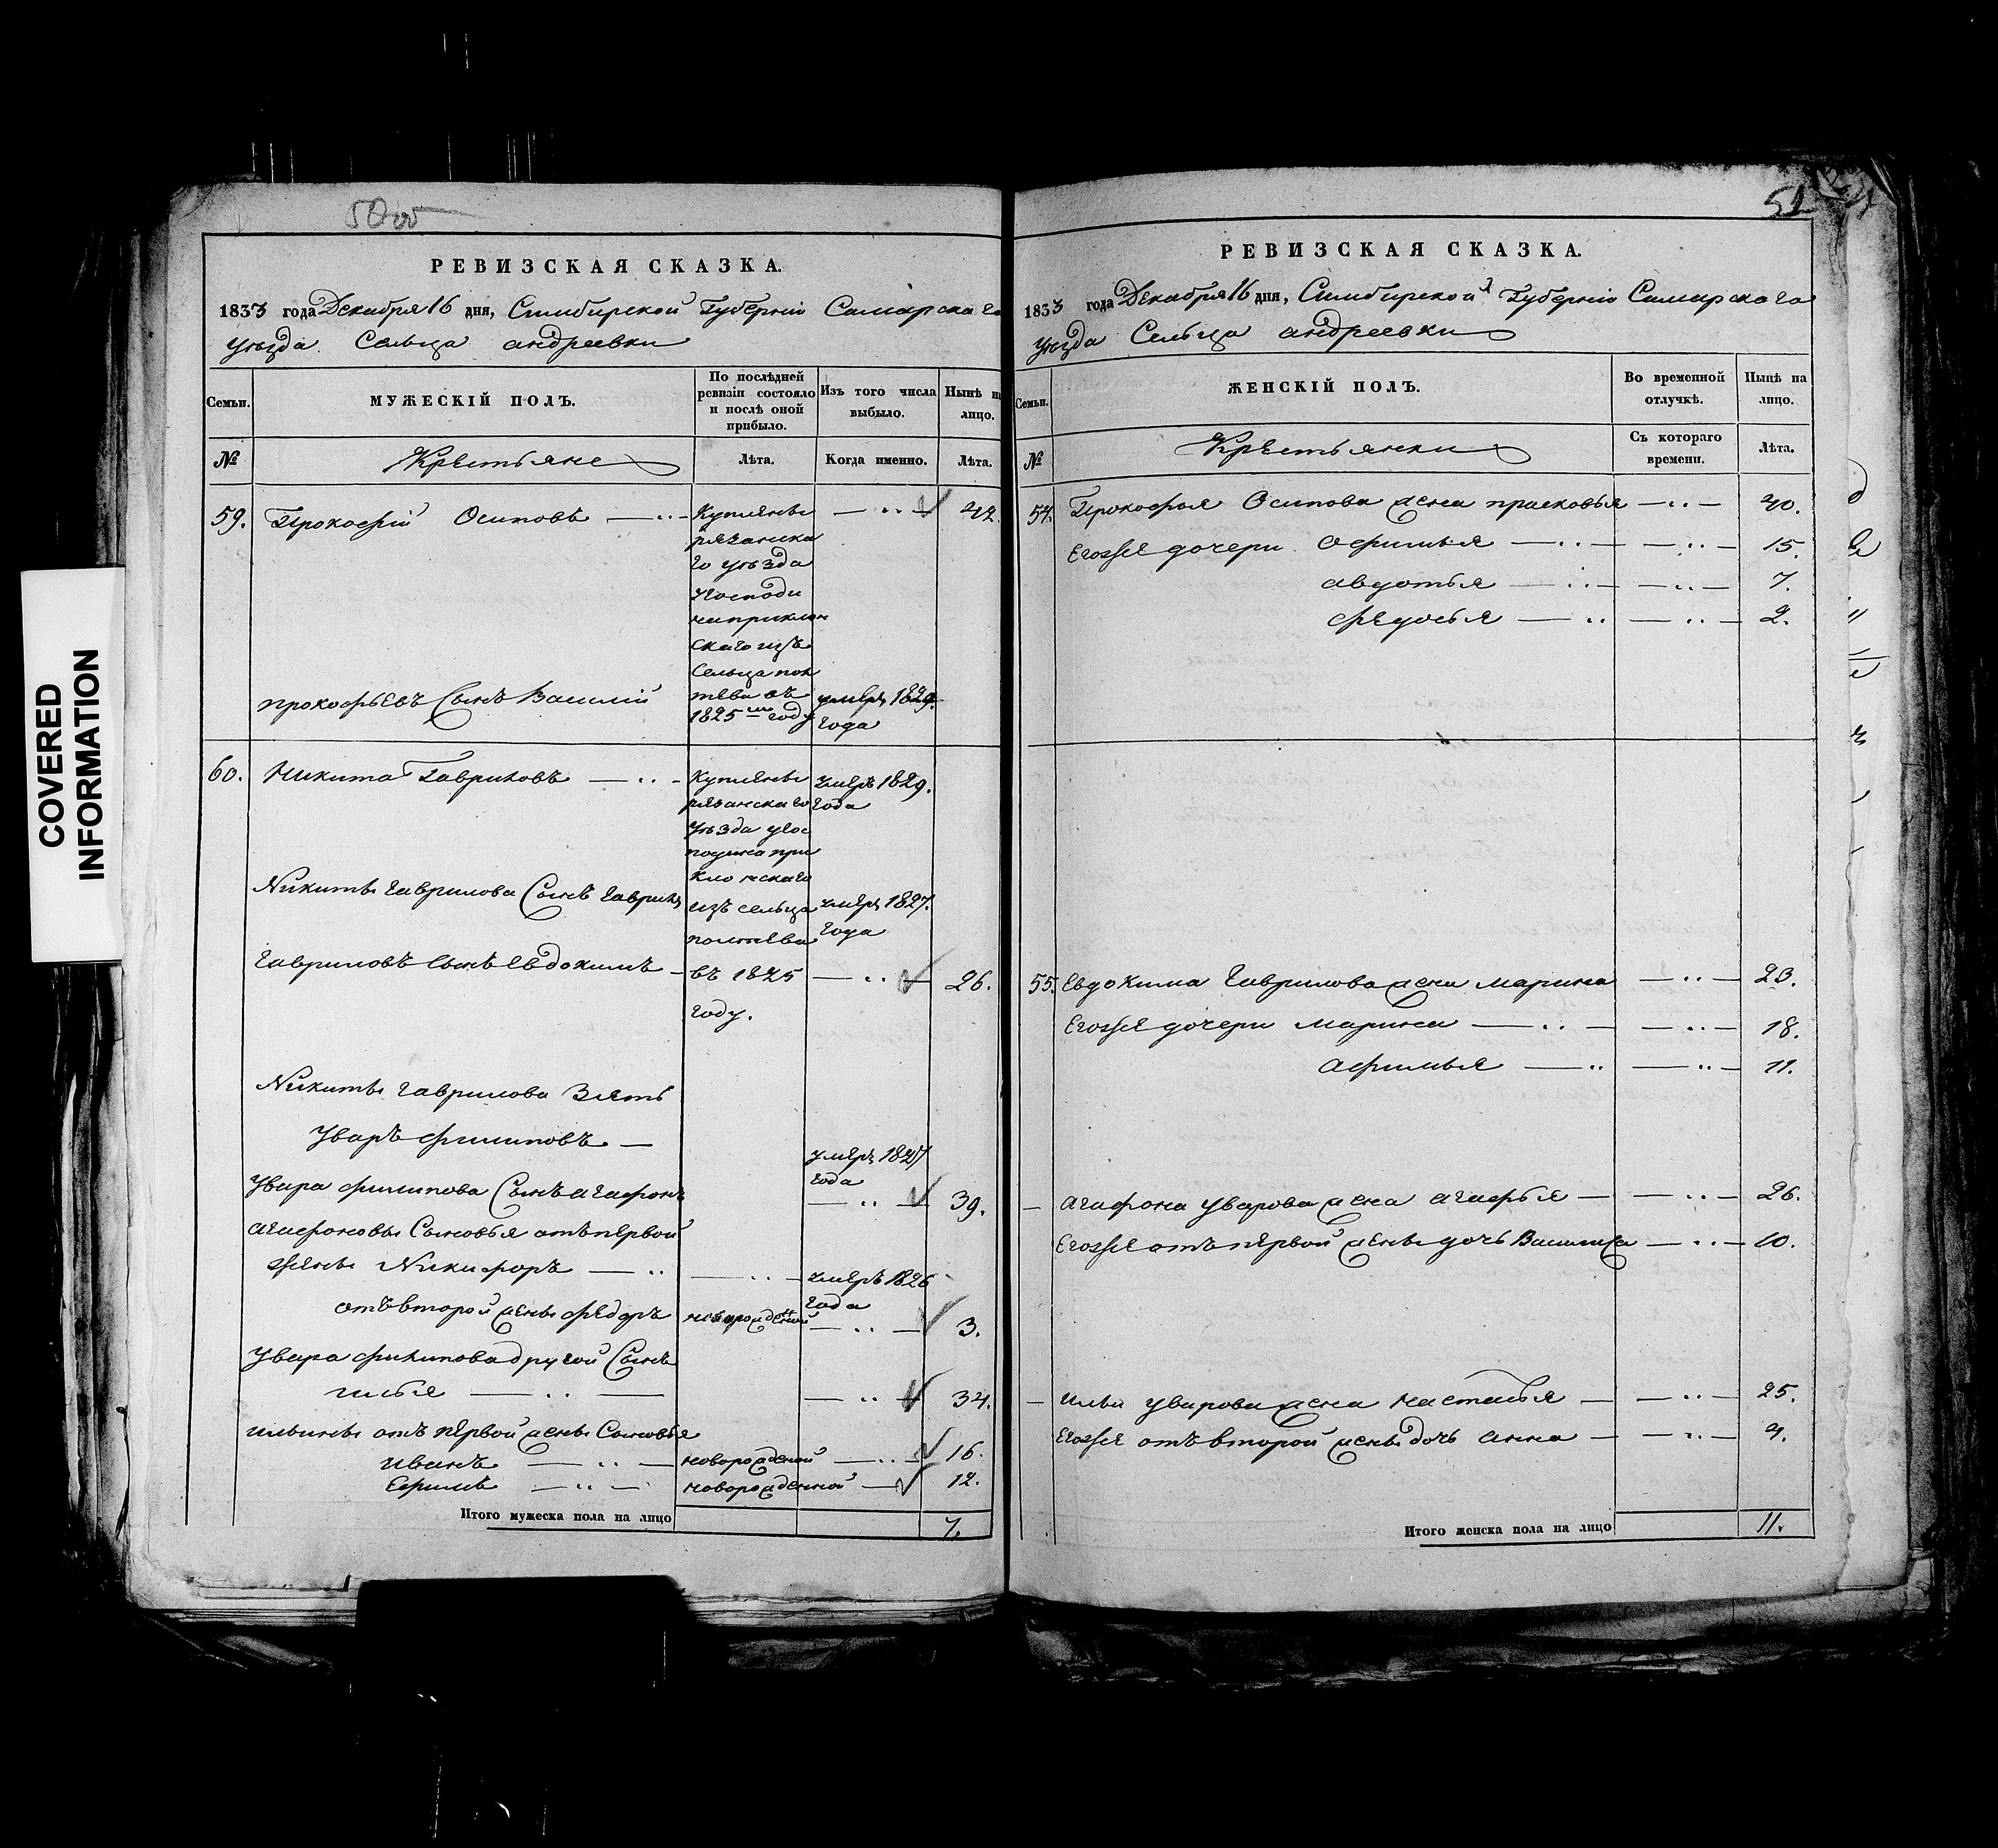 COVERED
INFORMATION
50об
РЕВИЗСКАЯ СКАЗКА.
1833 года Декабря 16 дня, Симбирской Губернiи Самарскаго
уѣзда Сельца андреевки
Семьи.
МУЖЕСКIЙ ПОЛЪ.
По послѣдней
ревизiи состояло
и послѣ оной
прибыло.
Изъ того числа
выбыло.
Нынѣ на
лицо.
№
Крестьяне
Лѣта.
Когда именно.
Лѣта.
59. Прокофiй Осиповъ — Купленъ — 42.
рязанска
го уѣзда
Господи
на приклон
скаго изъ
Сельца пол
прокофьевъ Сынъ Василiй тева въ умеръ 1829.
1825 м году года
60. Никита Гавриловъ — Купленъ умеръ 1829.
рязанскаго года
уѣзда у гос
подина при
клонскаго
Никиты гаврилова Сынъ гаврила изъ сельца умеръ 1827.
полтева года
гавриловъ сынъ Евдокимъ — въ 1825 — 26.
году.
Никиты гаврилова Зять
Уваръ филиповъ —
умеръ 1827
года
Увара филипова Сынъ агафонъ — 39.
агафоновы Сыновья отъ первой
жены Никифоръ — — умеръ 1826
года
отъ второй жены федоръ новорожденной — 3.
Увара филипова другой Сынъ
илья — — 34.
ильины отъ первой жены Сыновья
иванъ — новорожденой — 16.
Ефимъ — новорожденной — 12.
Итого мужеска пола на лицо 7.
51
РЕВИЗСКАЯ СКАЗКА.
1833 года Декабря 16 дня, Симбирской Губернiи Самарскаго
уѣзда Сельца андреевки
Семьи.
ЖЕНСКIЙ ПОЛЪ.
Во временной
отлучкѣ.
Нынѣ на
лицо.
№
Крестьянки
Съ котораго
времени.
Лѣта.
54. Прокофья Осипова жена прасковья — 40.
Егожъ дочери Офимья — — 15.
авдотья — — 7.
федосья — — 2.
55. Евдокима Гаврилова жена марина — 23.
Егожъ дочери марина — — 18.
афимья — — 11.
— агафона уварова жена агафья — — 26.
Егожъ отъ первой жены дочь Василиса — 10.
— ильи уварова жена настасья — — 25.
Егожъ отъ второй жены дочь анна — — 9.
Итого женска пола на лицо 11.